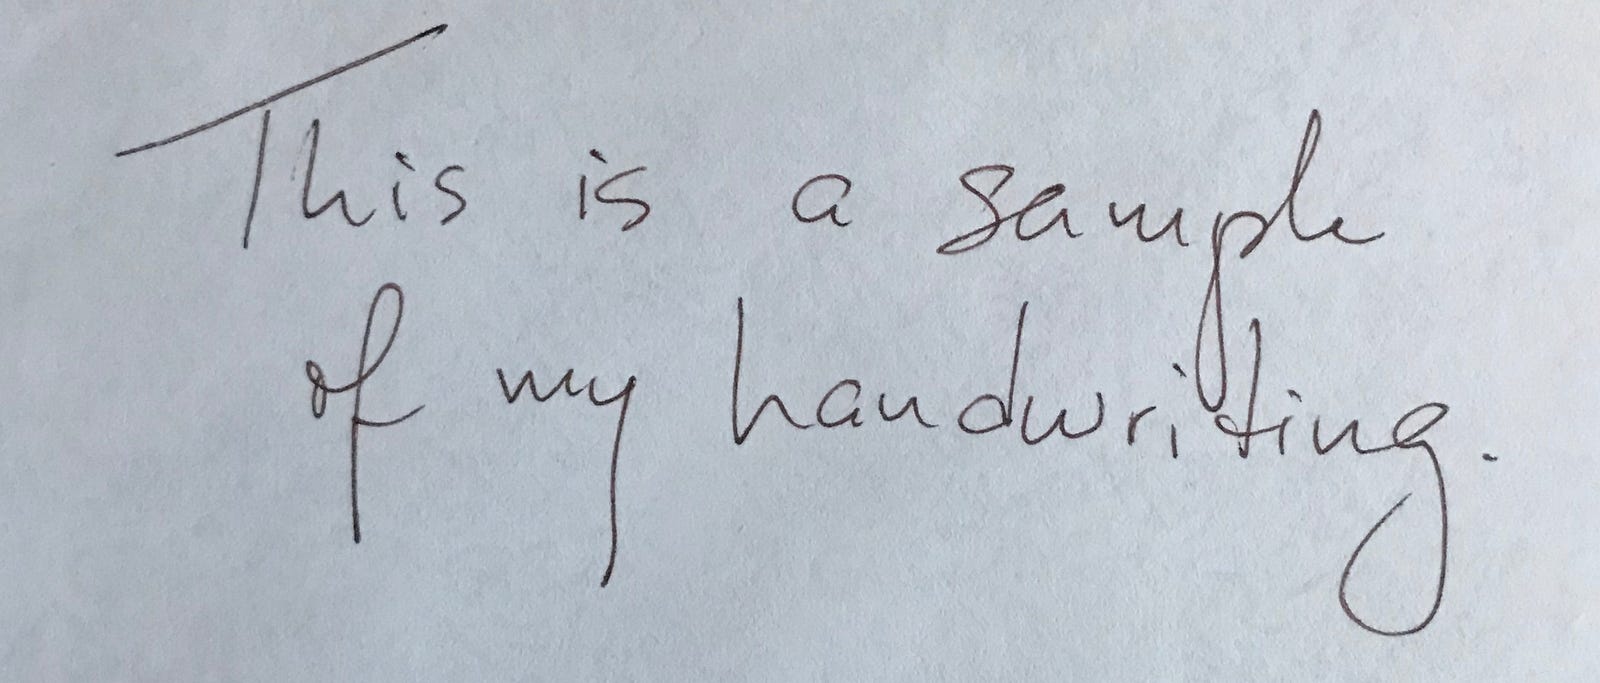 This is a sample
of my handwriting.